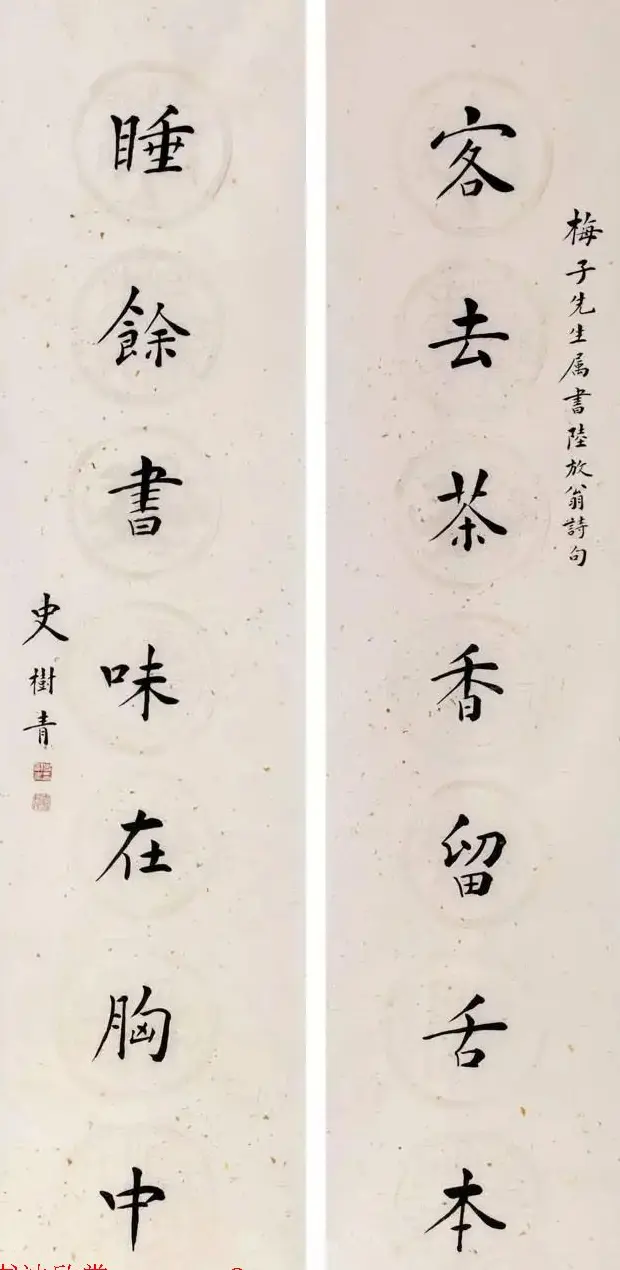 梅子先生属書陸放翁詩句
客去茶香留舌本
睡餘書味在胸中
史樹青